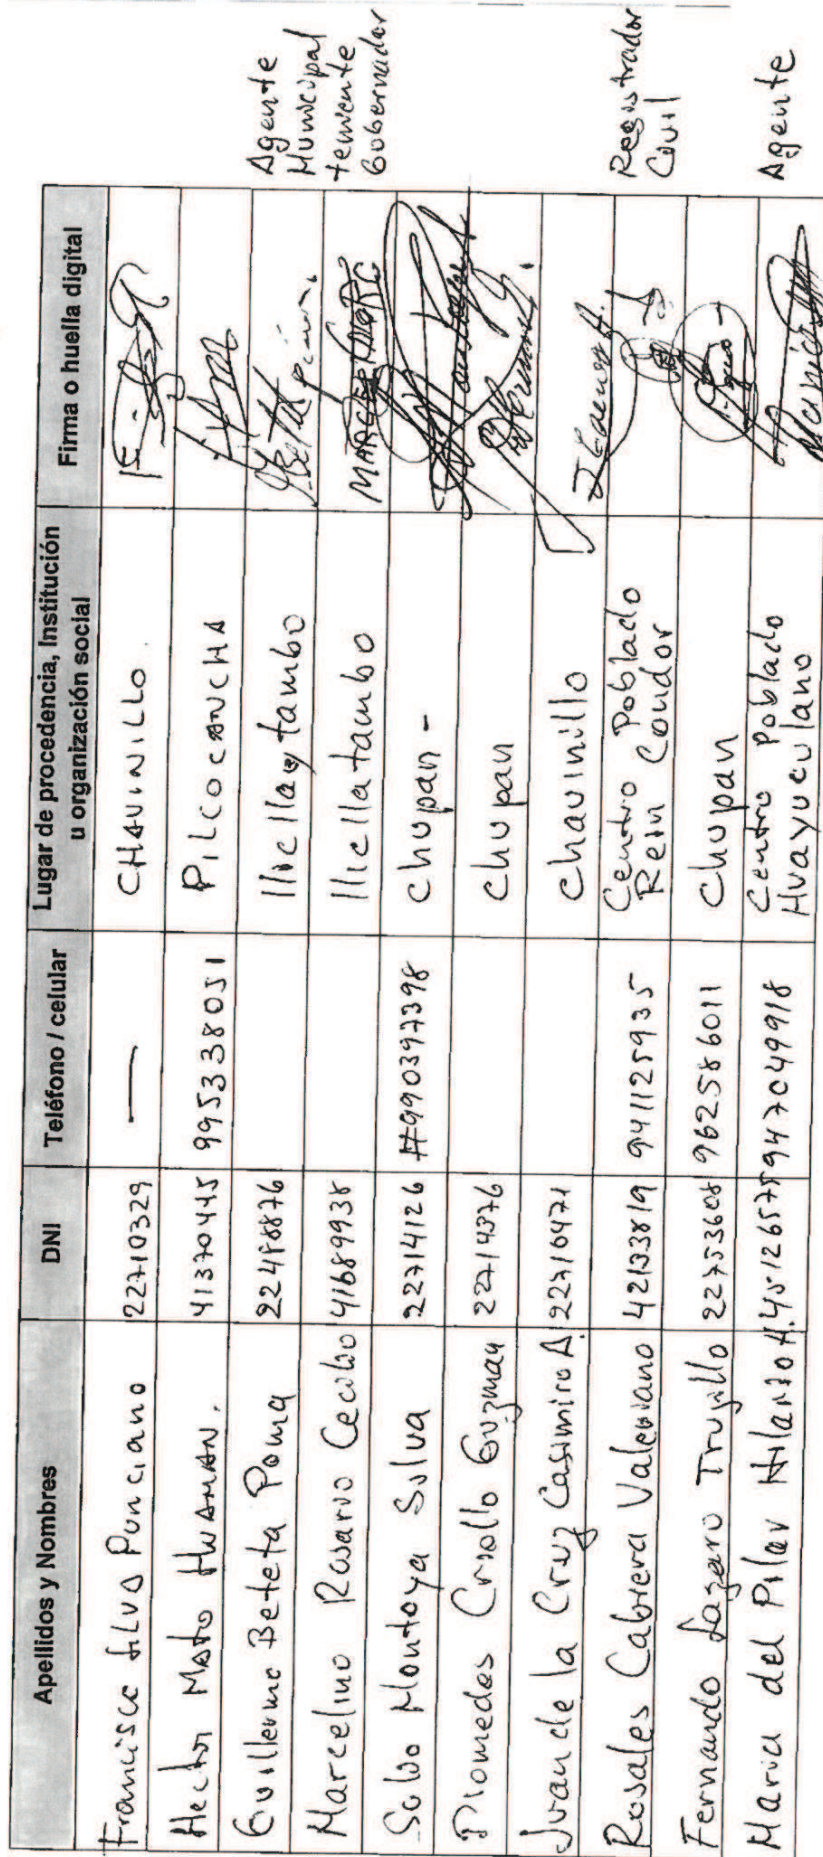 Apellidos y Nombres DNI Teléfono / celular Lugar de procedencia, Institución Firma o huella digital
u organización social
Francisco SILVA Ponciano 22710329 — CHAVINILLO.
Hector Mato HUAMAN. 41370445 995338051 PILCOCANCHA
Guillermo Beteta Poma 22488876 Illicllatambo Agente
Municipal
Marcelino Rosario Cecilio 41689938 Illicllatambo teniente
Gobernador
Montoya Silva 22714126 #990397398 Chupan -
Diomedes Criollo Guzman 22714376 Chupan
Juan de la Cruz Casimiro A. 22710471 Chavinillo
Rosales Cabrera Valeriano 42133819 941125935 Centro Poblado Registrador
Rein Condor Civil
Fernando Lazaro Trujillo 22753608 962586011 Chupan
Maria del Pilar Hilario H. 45126575 947049918 Centro Poblado Agente
Huayuculano